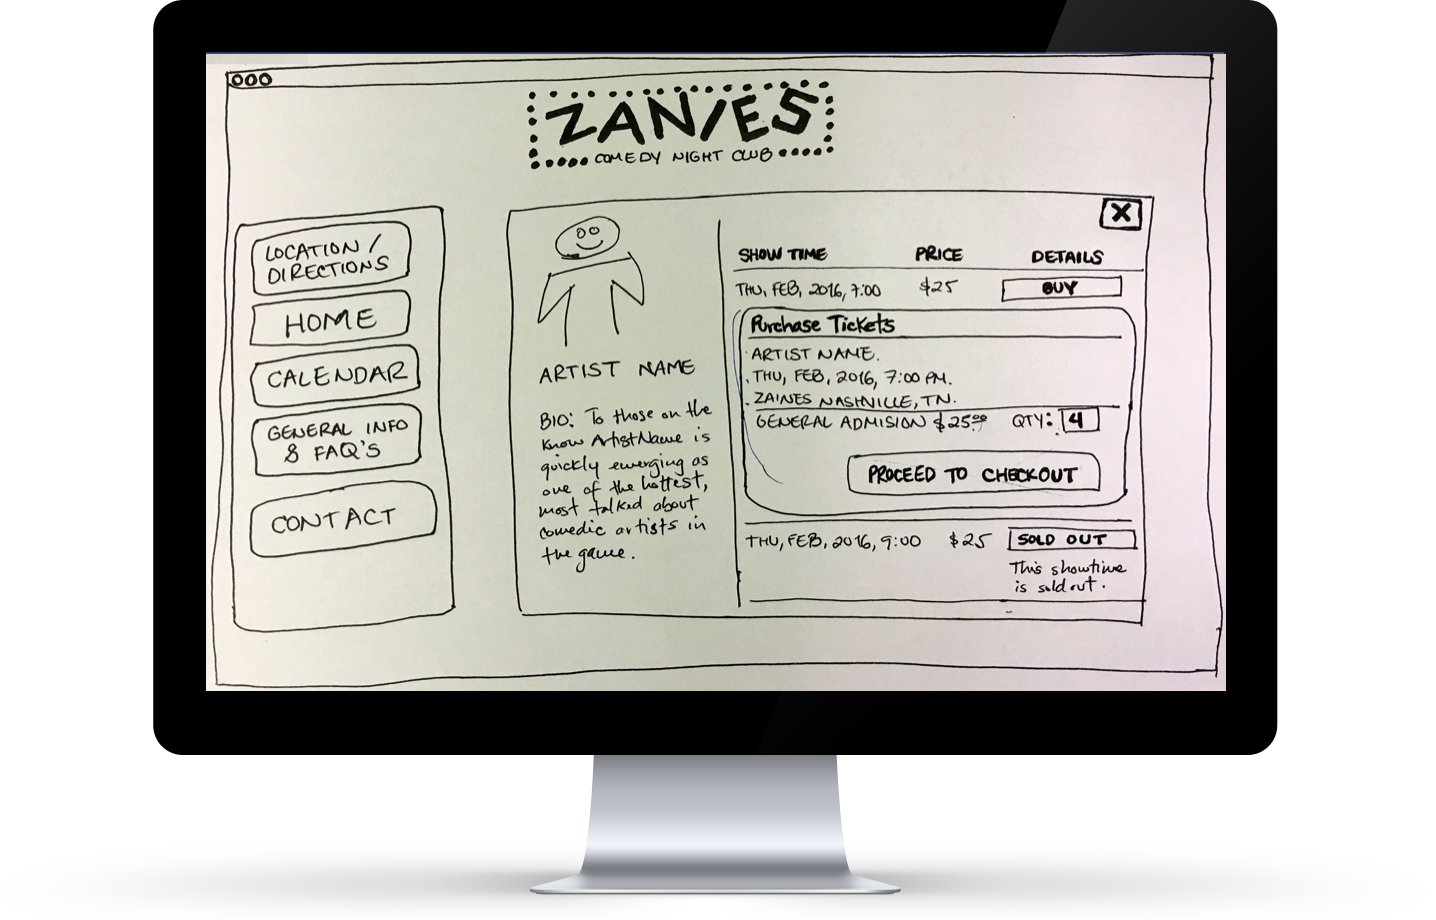 ZANIES
COMEDY NIGHT CLUB
LOCATION /
DIRECTIONS
HOME
CALENDAR
GENERAL INFO
& FAQ'S
CONTACT
ARTIST NAME
BIO: To those on the
know ArtistName is
quickly emerging as
one of the hottest,
most talked about
comedic artists in
the game.
X
SHOW TIME PRICE DETAILS
THU, FEB, 2016, 7:00 $25 BUY
Purchase Tickets
ARTIST NAME.
THU, FEB, 2016, 7:00 PM.
ZAINES NASHVILLE, TN.
GENERAL ADMISION $25.00 QTY: 4
PROCEED TO CHECKOUT
THU, FEB, 2016, 9:00 $25 SOLD OUT
This showtime
is sold out.